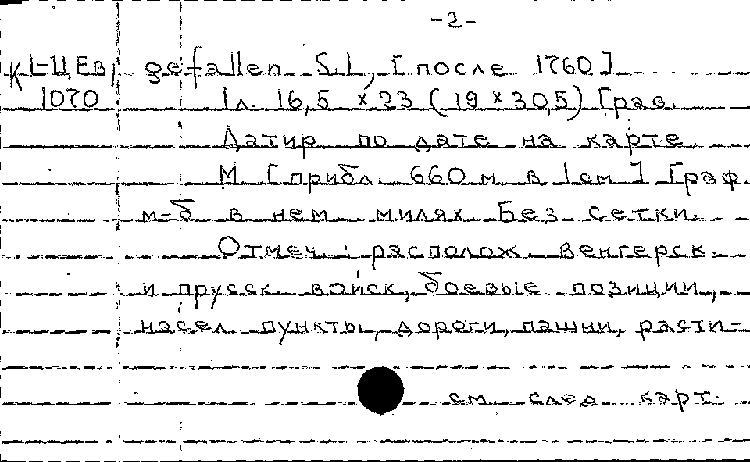 -2-
К1-ЦЕв, gefallen S.l., [после 1760]
1070 1л. 16,5 × 23 (19 × 30,5) Грав.
Датир по дате на карте
М [прибл. 660 м в 1см] Граф.
м-б в нем милях Без сетки.
Отмеч: располож венгерск.
и прусск войск, боевые позиции,
насел пункты, дороги, пашни, расти-
см след карт.